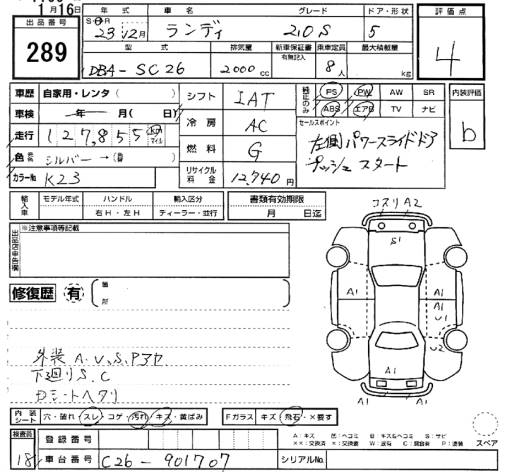 月16日
出品番号
289
年式 車名 グレード ドア・形状
S・H 23年12月 ランディ 2.0S 5
評価点
4
型式 排気量 新車保証書 有無記入 乗車定員 最大積載量
DBA-SC26 2000cc 8人 kg
車歴 自家用・レンタ( )
車検 年 月( 日)
走行 127,855 km マイル
色 シルバー→(替)
カラーNo K23
シフト IAT
冷房 AC
燃料 G
リサイクル料金 12,740円
純正のみ PS PW AW SR
ABS エアB TV ナビ
内装評価
b
セールスポイント
左側パワースライドドア
プッシュスタート
輸入車 モデル年式 ハンドル 輸入区分
右H・左H ディーラー・並行
書類有効期限
月 日迄
※注意事項等記載
修復歴 有
箇所
外装A.U.S.Pアヤ
下廻りS.C
コスリA2
S1
A1
A1
A1
U1
U2
A1
S1
内装シート 穴・破れ・スレ・コゲ・汚れ・キズ・黄ばみ
Fガラス キズ・飛石・×要す
A:キズ
スペア
検査員 18
登録番号
車台番号 C26-901707
シリアルNo.